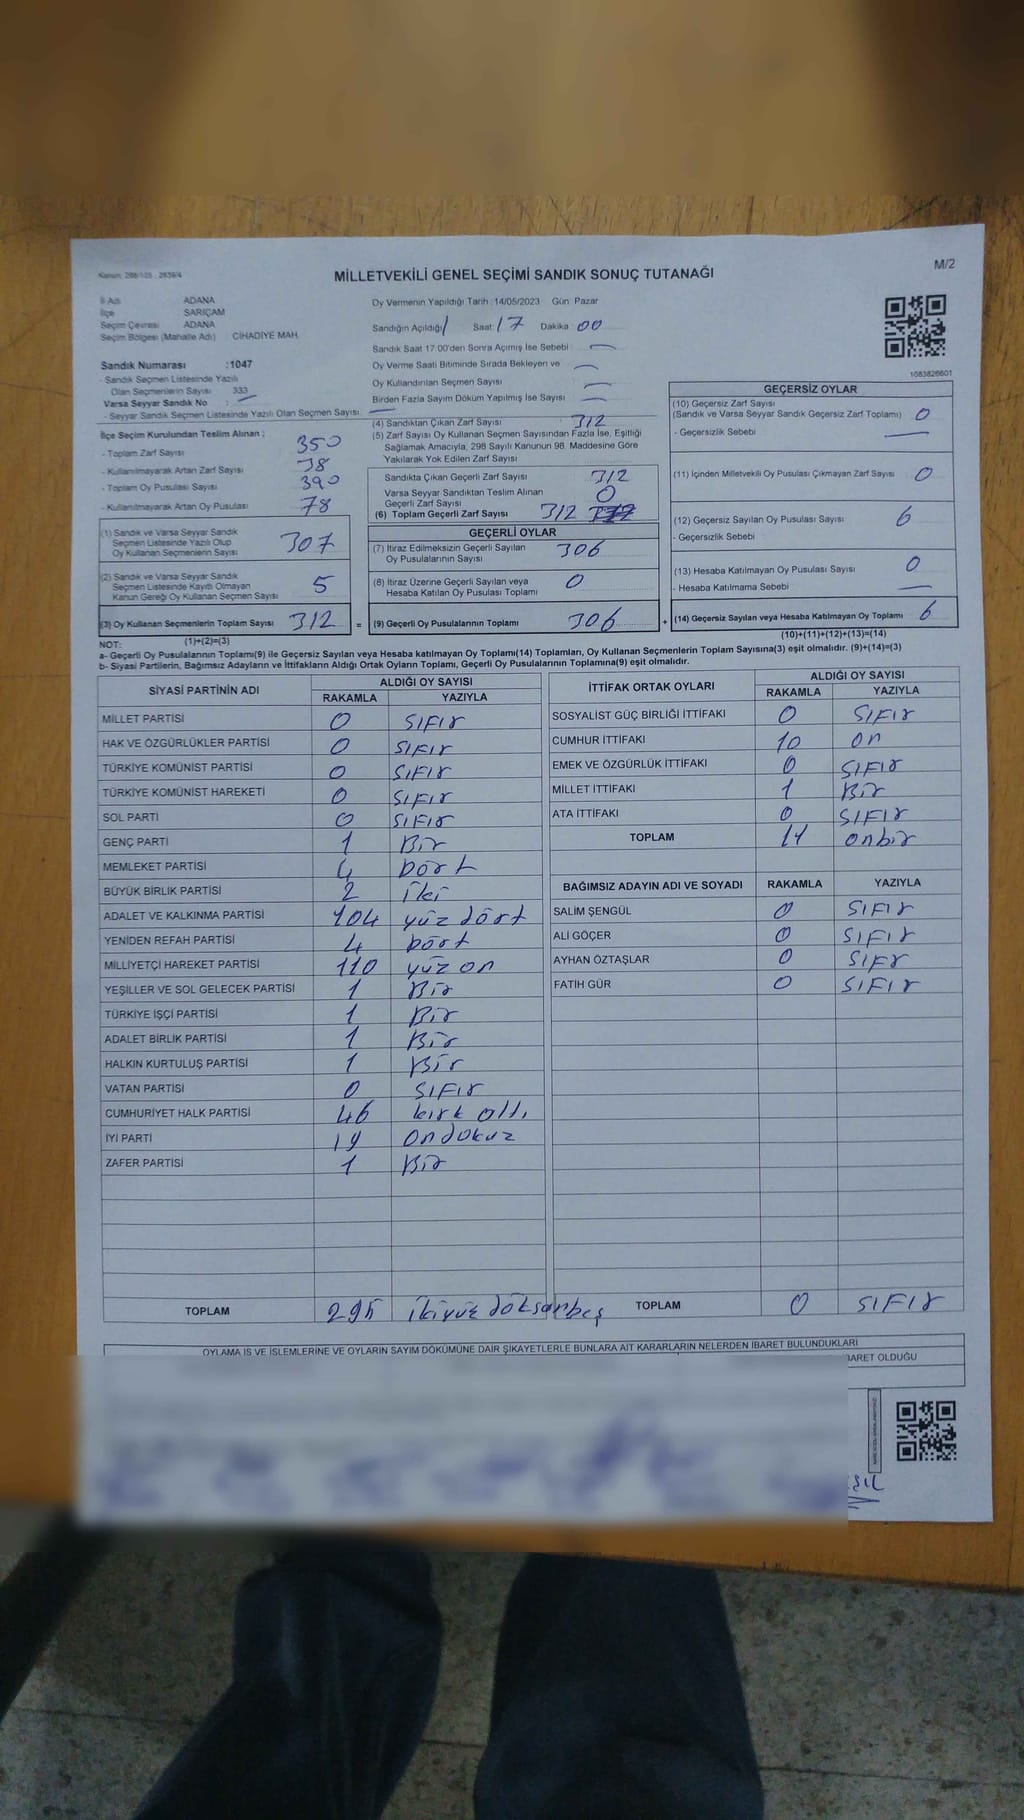 Kanun: 298/105 - 2839/4
MİLLETVEKİLİ GENEL SEÇİMİ SANDIK SONUÇ TUTANAĞI
M/2
İl Adı ADANA
İlçe SARIÇAM
Seçim Çevresi ADANA
Seçim Bölgesi (Mahalle Adı) CİHADİYE MAH.
Sandık Numarası :1047
- Sandık Seçmen Listesinde Yazılı
Olan Seçmenlerin Sayısı 333
Varsa Seyyar Sandık No : —
- Seyyar Sandık Seçmen Listesinde Yazılı Olan Seçmen Sayısı: —
İlçe Seçim Kurulundan Teslim Alınan :
- Toplam Zarf Sayısı 350
- Kullanılmayarak Artan Zarf Sayısı 38
- Toplam Oy Pusulası Sayısı 390
- Kullanılmayarak Artan Oy Pusulası 78
(1) Sandık ve Varsa Seyyar Sandık
Seçmen Listesinde Yazılı Olup
Oy Kullanan Seçmenlerin Sayısı 307
(2) Sandık ve Varsa Seyyar Sandık
Seçmen Listesinde Kayıtlı Olmayan
Kanun Gereği Oy Kullanan Seçmen Sayısı 5
(3) Oy Kullanan Seçmenlerin Toplam Sayısı 312 =
(1)+(2)=(3)
Oy Vermenin Yapıldığı Tarih :14/05/2023 Gün: Pazar
Sandığın Açıldığı Saat 17 Dakika 00
Sandık Saat 17:00'den Sonra Açımış İse Sebebi : —
Oy Verme Saati Bitiminde Sırada Bekleyen ve
Oy Kullandırılan Seçmen Sayısı —
Birden Fazla Sayım Döküm Yapılmış İse Sayısı —
(4) Sandıktan Çıkan Zarf Sayısı 312
(5) Zarf Sayısı Oy Kullanan Seçmen Sayısından Fazla İse, Eşitliği
Sağlamak Amacıyla, 298 Sayılı Kanunun 98. Maddesine Göre
Yakılarak Yok Edilen Zarf Sayısı
Sandıkta Çıkan Geçerli Zarf Sayısı 312
Varsa Seyyar Sandıktan Teslim Alınan
Geçerli Zarf Sayısı 0
(6) Toplam Geçerli Zarf Sayısı 312
GEÇERLİ OYLAR
(7) İtiraz Edilmeksizin Geçerli Sayılan
Oy Pusulalarının Sayısı 306
(8) İtiraz Üzerine Geçerli Sayılan veya
Hesaba Katılan Oy Pusulası Toplamı 0
(9) Geçerli Oy Pusulalarının Toplamı 306 +
1083826601
GEÇERSİZ OYLAR
(10) Geçersiz Zarf Sayısı
(Sandık ve Varsa Seyyar Sandık Geçersiz Zarf Toplamı) 0
- Geçersizlik Sebebi —
(11) İçinden Milletvekili Oy Pusulası Çıkmayan Zarf Sayısı 0
(12) Geçersiz Sayılan Oy Pusulası Sayısı 6
- Geçersizlik Sebebi
(13) Hesaba Katılmayan Oy Pusulası Sayısı 0
- Hesaba Katılmama Sebebi —
(14) Geçersiz Sayılan veya Hesaba Katılmayan Oy Toplamı 6
(10)+(11)+(12)+(13)=(14)
NOT:
a- Geçerli Oy Pusulalarının Toplamı(9) ile Geçersiz Sayılan veya Hesaba katılmayan Oy Toplamı(14) Toplamları, Oy Kullanan Seçmenlerin Toplam Sayısına(3) eşit olmalıdır. (9)+(14)=(3)
b- Siyasi Partilerin, Bağımsız Adayların ve İttifakların Aldığı Ortak Oyların Toplamı, Geçerli Oy Pusulalarının Toplamına(9) eşit olmalıdır.
SİYASİ PARTİNİN ADI ALDIĞI OY SAYISI
RAKAMLA YAZIYLA
MİLLET PARTİSİ 0 SIFIR
HAK VE ÖZGÜRLÜKLER PARTİSİ 0 SIFIR
TÜRKİYE KOMÜNİST PARTİSİ 0 SIFIR
TÜRKİYE KOMÜNİST HAREKETİ 0 SIFIR
SOL PARTİ 0 SIFIR
GENÇ PARTİ 1 Bir
MEMLEKET PARTİSİ 4 Dört
BÜYÜK BİRLİK PARTİSİ 2 iki
ADALET VE KALKINMA PARTİSİ 104 yüz dört
YENİDEN REFAH PARTİSİ 4 Dört
MİLLİYETÇİ HAREKET PARTİSİ 110 yüz on
YEŞİLLER VE SOL GELECEK PARTİSİ 1 Bir
TÜRKİYE İŞÇİ PARTİSİ 1 Bir
ADALET BİRLİK PARTİSİ 1 Bir
HALKIN KURTULUŞ PARTİSİ 1 Bir
VATAN PARTİSİ 0 SIFIR
CUMHURİYET HALK PARTİSİ 46 kırk altı
İYİ PARTİ 19 ondokuz
ZAFER PARTİSİ 1 Bir
TOPLAM 295 ikiyüz doksanbeş
İTTİFAK ORTAK OYLARI ALDIĞI OY SAYISI
RAKAMLA YAZIYLA
SOSYALİST GÜÇ BİRLİĞİ İTTİFAKI 0 SIFIR
CUMHUR İTTİFAKI 10 on
EMEK VE ÖZGÜRLÜK İTTİFAKI 0 SIFIR
MİLLET İTTİFAKI 1 Bir
ATA İTTİFAKI 0 SIFIR
TOPLAM 11 onbir
BAĞIMSIZ ADAYIN ADI VE SOYADI RAKAMLA YAZIYLA
SALİM ŞENGÜL 0 SIFIR
ALİ GÖÇER 0 SIFIR
AYHAN ÖZTAŞLAR 0 SIFR
FATİH GÜR 0 SIFIR
TOPLAM 0 SIFIR
OYLAMA İŞ VE İŞLEMLERİNE VE OYLARIN SAYIM DÖKÜMÜNE DAİR ŞİKAYETLERLE BUNLARA AİT KARARLARIN NELERDEN İBARET BULUNDUKLARI
BARET OLDUĞU